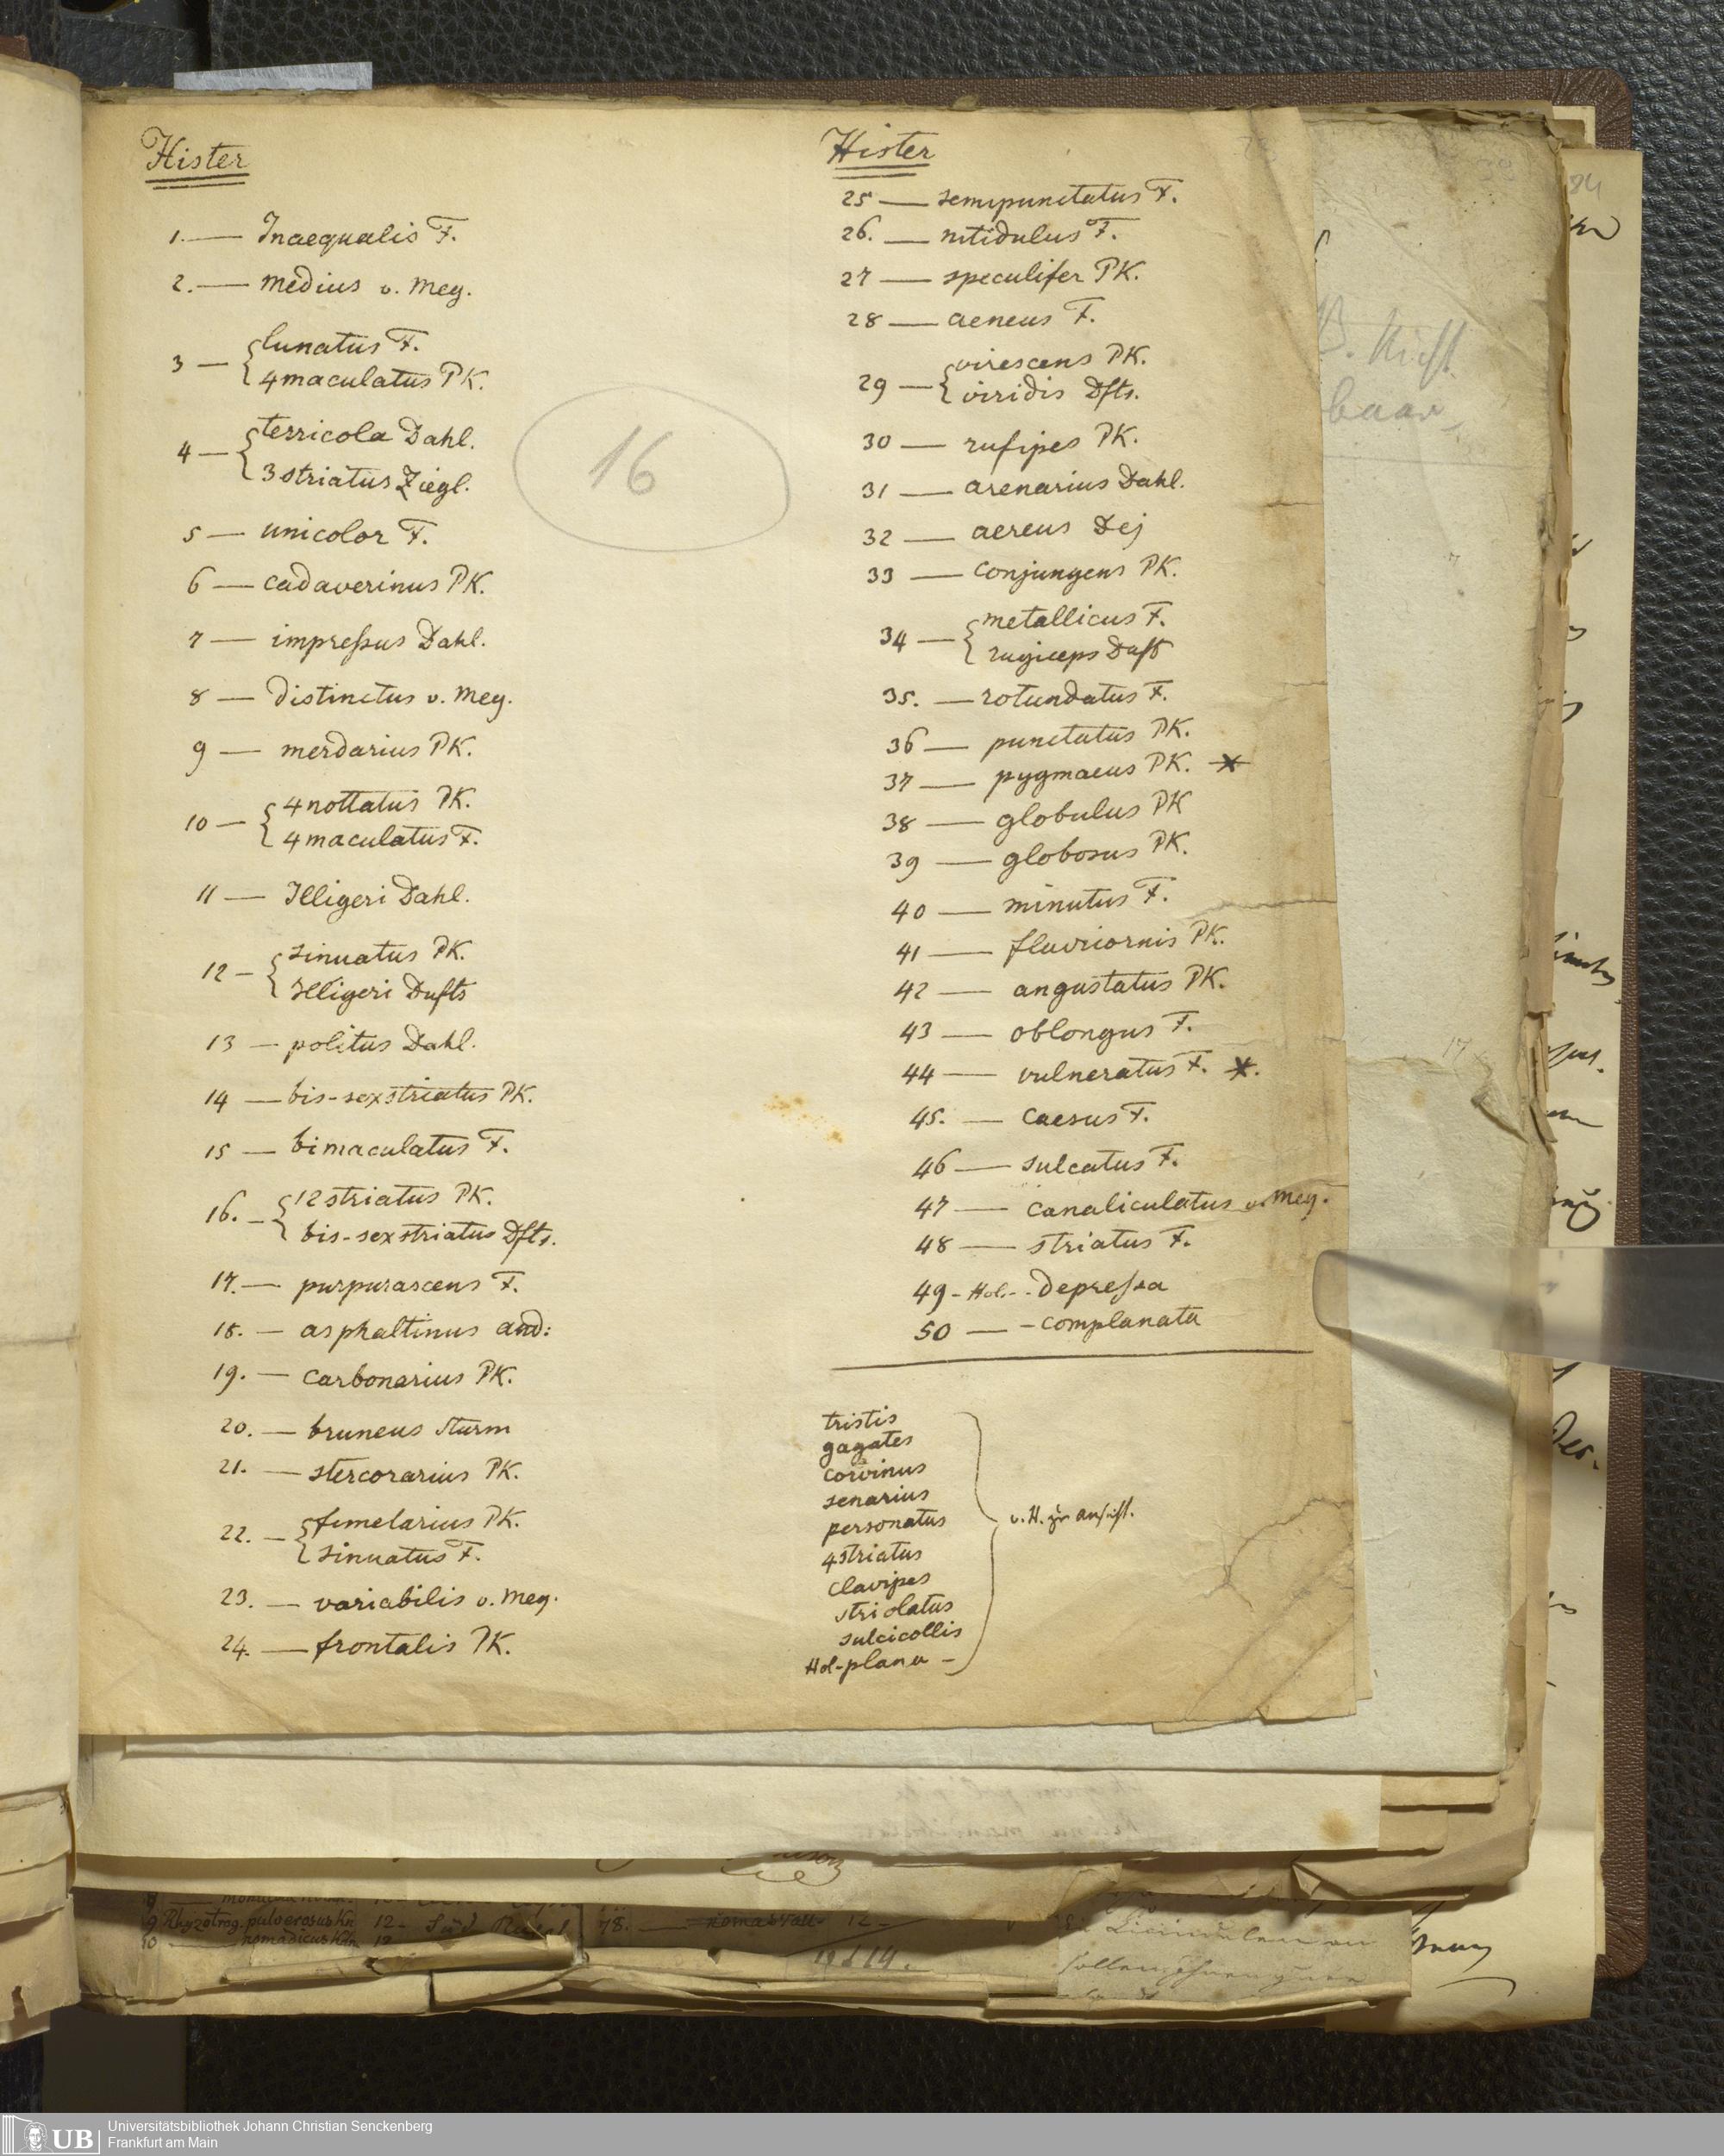 Hister
1. — Inaequalis F.
2. — medius v. Meg.
3 — { lunatus F.
4maculatus PK.
4 — { terricola Dahl.
3striatus Ziegl.
5 — unicolor F.
6 — cadaverinus PK.
7 — impreſsus Dahl.
8 — distinctus v. Meg.
9 — merdarius PK.
10 — { 4nottatus PK.
4maculatus F.
11 — Illigeri Dahl.
12 — { sinuatus PK.
Illigeri Dufts
13 — politus Dahl.
14 — bis-sexstriatus PK.
15 — bimaculatus F.
16. — { 12striatus PK.
bis-sexstriatus Dfts.
17. — purpurascens F.
18. — asphaltinus and:
19. — carbonarius PK.
20. — bruneus Sturm
21. — stercorarius PK.
22. — { fimetarius PK.
sinuatus F.
23. — variabilis v. Meg.
24. — frontalis PK.
16
Hister
25 — semipunctatus F.
26. — nitidulus F.
27 — speculifer PK.
28 — aeneus F.
29 — { virescens PK.
viridis Dfts.
30 — rufipes PK.
31 — arenarius Dahl.
32 — aereus Dej
33 — conjungens PK.
34 — { metallicus F.
rugiceps Duft
35. — rotundatus F.
36 — punctatus PK.
37 — pygmaeus PK. *
38 — globulus PK
39 — globosus PK.
40 — minutus F.
41 — flavicornis PK.
42 — angustatus PK.
43 — oblongus F.
44 — vulneratus F. *.
45. — caesus F.
46 — sulcatus F.
47 — canaliculatus v. Meg.
48 — striatus F.
49 - Hol. - depreſsa
50 — - complanata
tristis
gagates
corvinus
senarius
personatus
4striatus
clavipes
striolatus
sulcicollis
Hol-plana -
v. H. zur ansicht.
84
B. Nicht
baar
9 Rhyzotrog. pulverosus Kn 12 -
10 — nomadicus Kn 12
78. — 12 -
UB
Universitätsbibliothek Johann Christian Senckenberg
Frankfurt am Main